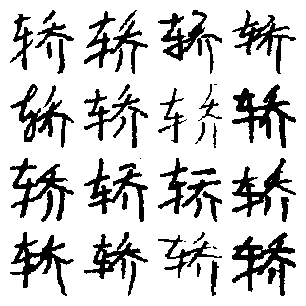 轿轿轿轿
轿轿轿轿
轿轿轿轿
轿轿轿轿